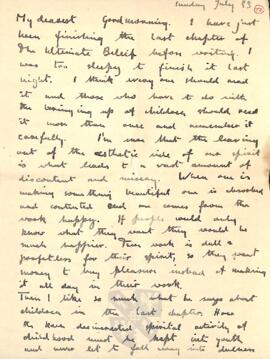 Sunday July 23
My dearest Goodmorning. I have just
been finishing the last chapter of
The Ultimate Beleif before writing. I
was too sleepy to finish it last
night. I think everyone should read
it and those who have to do with
the bringing up of children should read
it more than once and remember it
carefully. I'm sure that the leaving
out of the aesthetic side of our spirit
is what leads to a vast amount of
discontent and misery. When one is
making something beautiful one is absorbed
and contented and one comes from the
work happy. If people would only
know what they want they would be
much happier. Their work is dull &
profitless for their spirit, so they want
money to buy pleasure instead of making
it all day in their work.
Then I like so much what he says about
children in the last chapter. How
the disinterested spiritual activity of
childhood must be kept into youth
and never let to fall into dullness